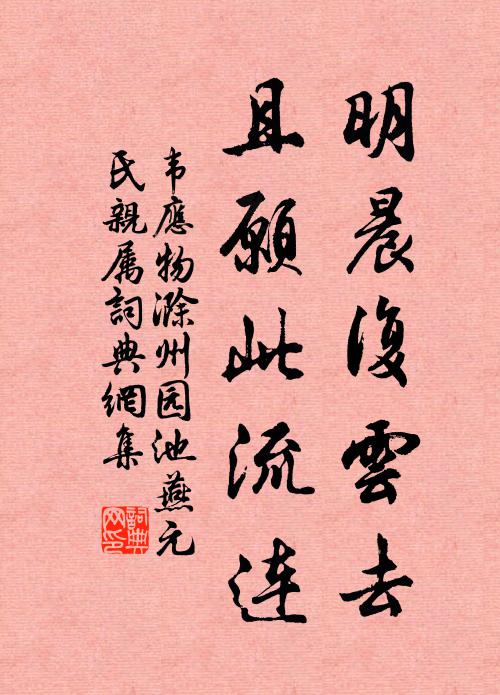 明晨復雲去
且願此流连
韦應物滁州园池燕元
氏親属詞典網集
詞典网印